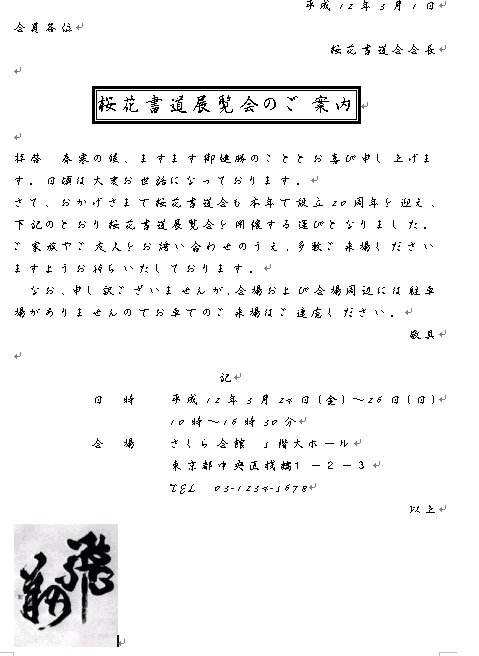 平成12年3月1日
会員各位
桜花書道会会長
桜花書道展覧会のご案内
拝啓　春寒の候、ますます御健勝のこととお喜び申し上げま
す。日頃は大変お世話になっております。
さて、おかげさまで桜花書道会も本年で設立20周年を迎え、
下記のとおり桜花書道展覧会を開催する運びとなりました。
ご家族やご友人をお誘い合わせのうえ、多数ご来場ください
ますようお待ちいたしております。
なお、申し訳ございませんが、会場および会場周辺には駐車
場がありませんのでお車でのご来場はご遠慮ください。
敬具
記
日　時　平成12年3月24日(金)～26日(日)
10時～16時30分
会　場　さくら会館　5階大ホール
東京都中央区桟橋1－2－3
TEL　03-1234-5678
以上
飛
翔